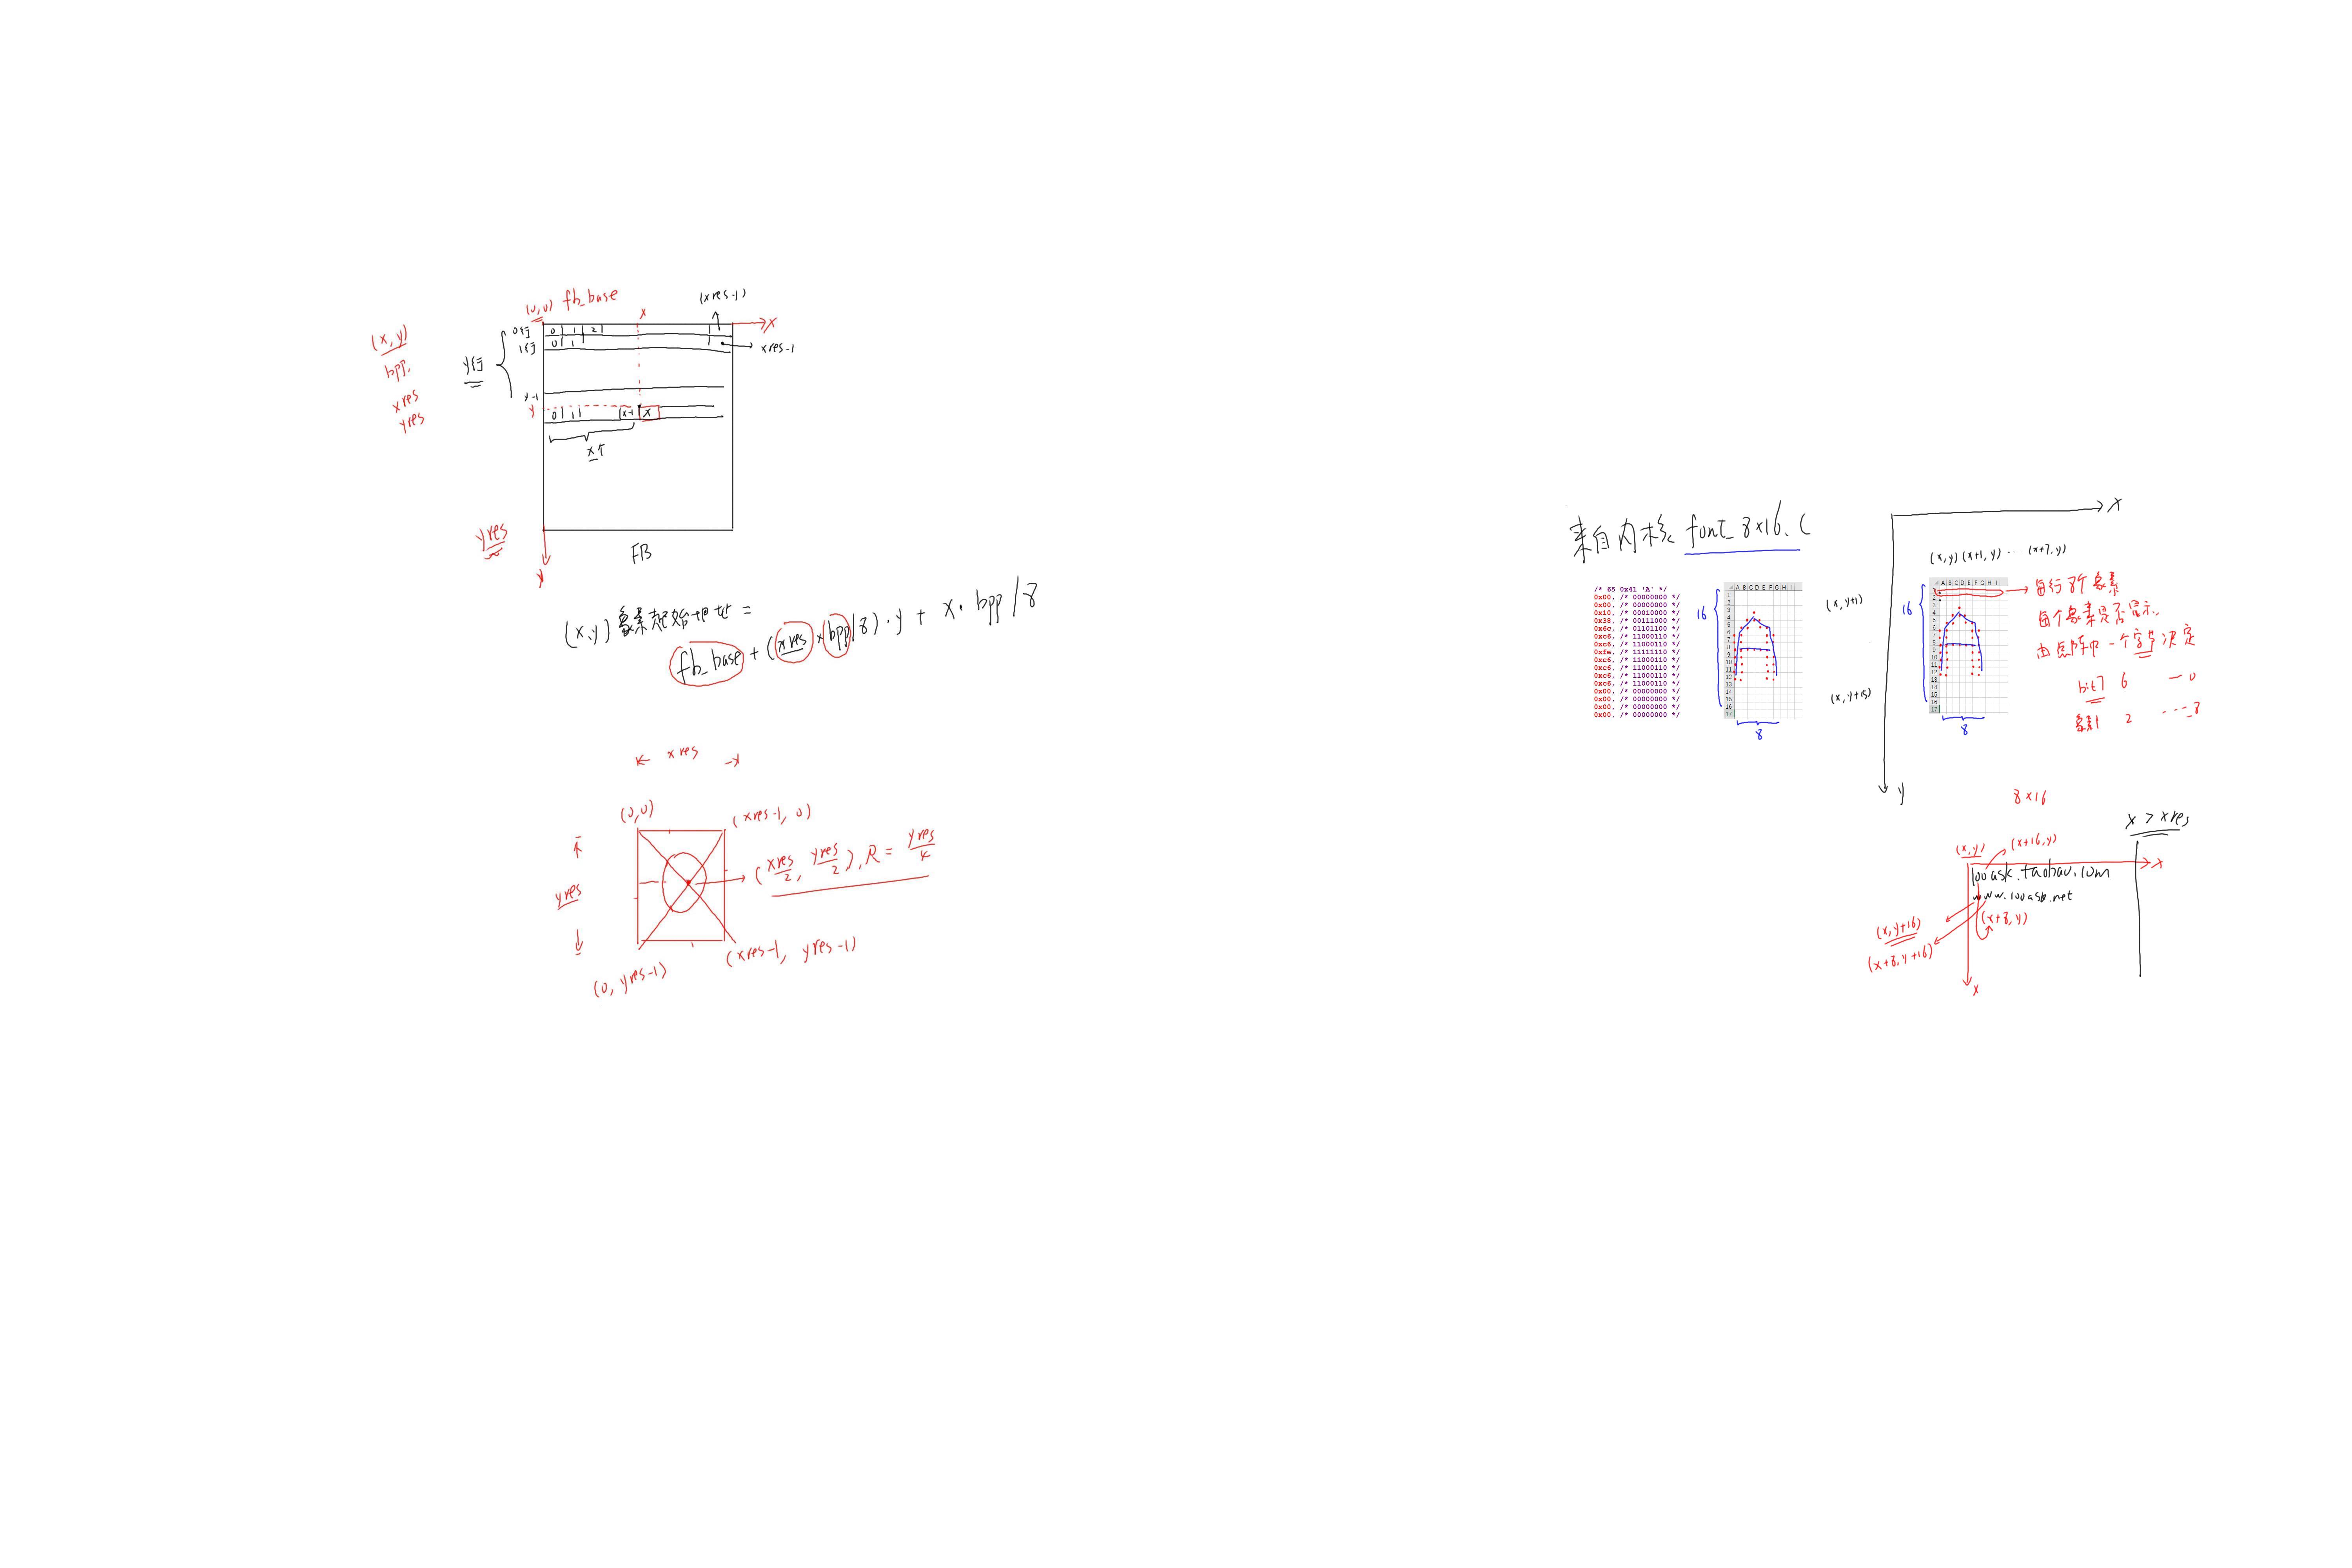 (0,0) fb_base
(xres-1)
x
x
(x,y)
bpp.
xres
yres
y行
0行
0 1 2
1行
0 1
xres-1
y-1
y
0 1 x-1 x
x个
yres
y
FB
(x,y)象素起始地址 =
fb_base + (xres × bpp/8)·y + x·bpp/8
xres
(0,0)
(xres-1, 0)
yres
(xres/2, yres/2), R = yres/4
(0, yres-1)
(xres-1, yres-1)
来自内核 font_8×16.c
/* 65 0x41 'A' */
0x00, /* 00000000 */
0x00, /* 00000000 */
0x10, /* 00010000 */
0x38, /* 00111000 */
0x6c, /* 01101100 */
0xc6, /* 11000110 */
0xc6, /* 11000110 */
0xfe, /* 11111110 */
0xc6, /* 11000110 */
0xc6, /* 11000110 */
0xc6, /* 11000110 */
0xc6, /* 11000110 */
0x00, /* 00000000 */
0x00, /* 00000000 */
0x00, /* 00000000 */
0x00, /* 00000000 */
16
A B C D E F G H I
1
2
3
4
5
6
7
8
9
10
11
12
13
14
15
16
17
8
x
(x,y) (x+1,y) ·· (x+7,y)
(x,y+1)
(x,y+15)
y
16
A B C D E F G H I
1
2
3
4
5
6
7
8
9
10
11
12
13
14
15
16
17
8
每行8个象素
每个象素是否显示.
由点阵中一个字节决定
bit7 6 — 0
象素1 2 ···8
8×16
x > xres
(x,y)
(x+16,y)
x
100ask.taobao.com
www.100ask.net
(x+8,y)
(x,y+16)
(x+8,y+16)
x